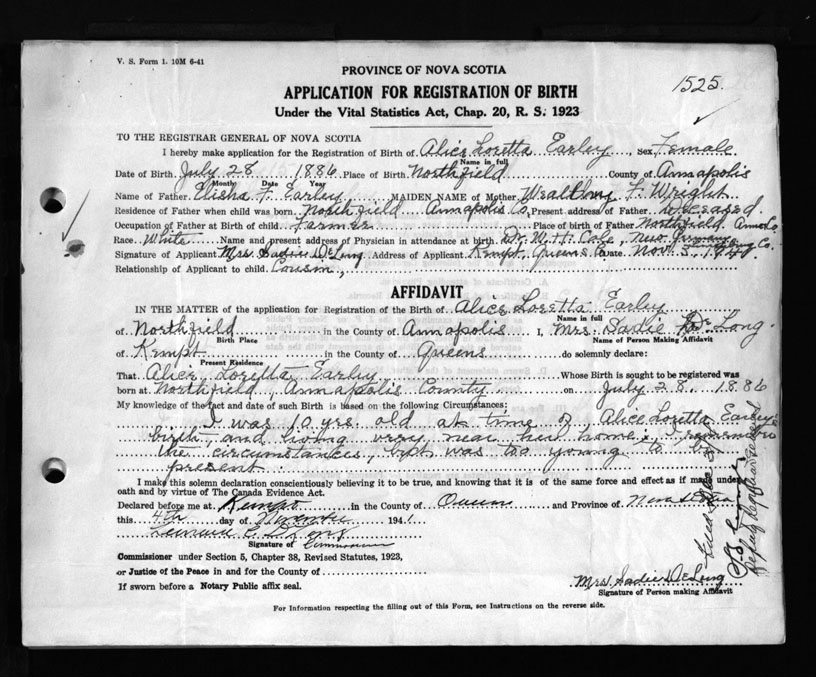 V. S. Form 1. 10M 6-41
PROVINCE OF NOVA SCOTIA
1525.
APPLICATION FOR REGISTRATION OF BIRTH
Under the Vital Statistics Act, Chap. 20, R. S. 1923
TO THE REGISTRAR GENERAL OF NOVA SCOTIA
I hereby make application for the Registration of Birth of Alice Loretta Earley, Sex Female
Name in full
Date of Birth July 28 1886 Place of Birth Northfield County of Annapolis
Month Date Year
Name of Father Elisha F. Earley, MAIDEN NAME of Mother F. Wright
Residence of Father when child was born Northfield Annapolis Co, Present address of Father deceased.
Occupation of Father at Birth of child Farmer Place of birth of Father Northfield Anna Co.
Race White Name and present address of Physician in attendance at birth Dr. W. H. Cole, New Germany
Lunenburg Co.
Signature of Applicant Mrs Sadie DeLong Address of Applicant Kempt, Queens Co Date Nov. 3, 1941
Relationship of Applicant to child Cousin,
AFFIDAVIT
IN THE MATTER of the application for Registration of the Birth of Alice Loretta Earley
Name in full
of Northfield in the County of Annapolis I, Mrs. Sadie De Long
Birth Place Name of Person Making Affidavit
of Kempt in the County of Queens do solemnly declare:
Present Residence
That Alice Loretta Earley Whose Birth is sought to be registered was
born at Northfield, Annapolis County on July 28, 1886
My knowledge of the fact and date of such Birth is based on the following Circumstances:
I was 10 yrs. old at time of Alice Loretta Earley's
birth, and living very near her home, I remember
the circumstances, but was too young to be
present.
I make this solemn declaration conscientiously believing it to be true, and knowing that it is of the same force and effect as if made under
oath and by virtue of The Canada Evidence Act.
Declared before me at Kempt in the County of Queens and Province of Nova Scotia
this 4th day of November 1941
Signature of Commissioner
Commissioner under Section 5, Chapter 38, Revised Statutes, 1923,
or Justice of the Peace in and for the County of
If sworn before a Notary Public affix seal.
Mrs. Sadie DeLong
Signature of Person making Affidavit
For Information respecting the filling out of this Form, see Instructions on the reverse side.
Deputy Registrar General